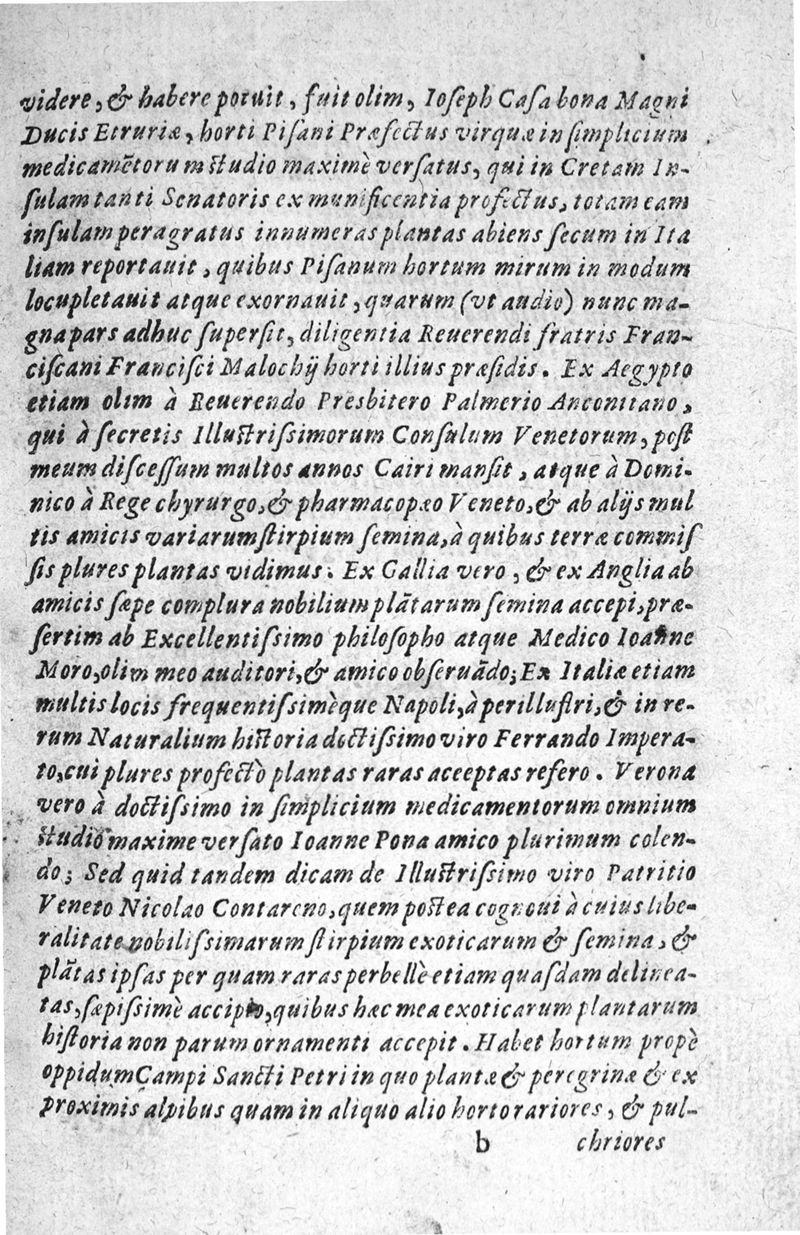 videre, & habere potuit, fuit olim, Ioſeph Caſabona Magni
Ducis Etruriæ, horti Piſani Præfectus vir quæ in ſimplicium
medicamētorum ſtudio maximè verſatus, qui in Cretam In-
ſulam tanti Senatoris ex munificentia profectus, totam eam
inſulam peragratus innumeras plantas abiens ſecum in Ita
liam reportauit, quibus Piſanum hortum mirum in modum
locupletauit atque exornauit, quarum (vt audio) nunc ma-
gna pars adhuc ſuperſit, diligentia Reuerendi fratris Fran-
ciſcani Franciſci Malochij horti illius præſidis. Ex Aegypto
etiam olim à Reuerendo Presbitero Palmerio Anconitano,
qui à ſecretis Illuſtriſsimorum Conſulum Venetorum, poſt
meum diſceſſum multos annos Cairi manſit, atque à Domi-
nico à Rege chyrurgo, & pharmacopæo Veneto, & ab alijs mul
tis amicis variarum ſtirpium ſemina, à quibus terræ commiſ
ſis plures plantas vidimus. Ex Gallia vero, & ex Anglia ab
amicis ſæpe complura nobilium plātarum ſemina accepi, præ-
ſertim ab Excellentiſsimo philoſopho atque Medico Ioanne
Moro, olim meo auditori, & amico obſeruādo; Ex Italiæ etiam
multis locis frequentiſsimèque Napoli, à perilluſtri, & in re-
rum Naturalium hiſtoria doctiſsimo viro Ferrando Impera-
to, cui plures profectò plantas raras aceeptas refero. Verona
vero à doctiſsimo in ſimplicium medicamentorum omnium
ſtudio maxime verſato Ioanne Pona amico plurimum colen-
do; Sed quid tandem dicam de Illuſtriſsimo viro Patritio
Veneto Nicolao Contareno, quem poſtea cognoui à cuius libe-
ralitate nobiliſsimarum ſtirpium exoticarum & ſemina, &
plātas ipſas per quam raras perbellè etiam quaſdam delinea-
tas, ſæpiſsimè accipio, quibus hæc mea exoticarum plantarum
hiſtoria non parum ornamenti accepit. Habet hortum propè
oppidum Campi Sancti Petri in quo plantæ & peregrinæ & ex
proximis alpibus quam in aliquo alio horto rariores, & pul-
b chriores